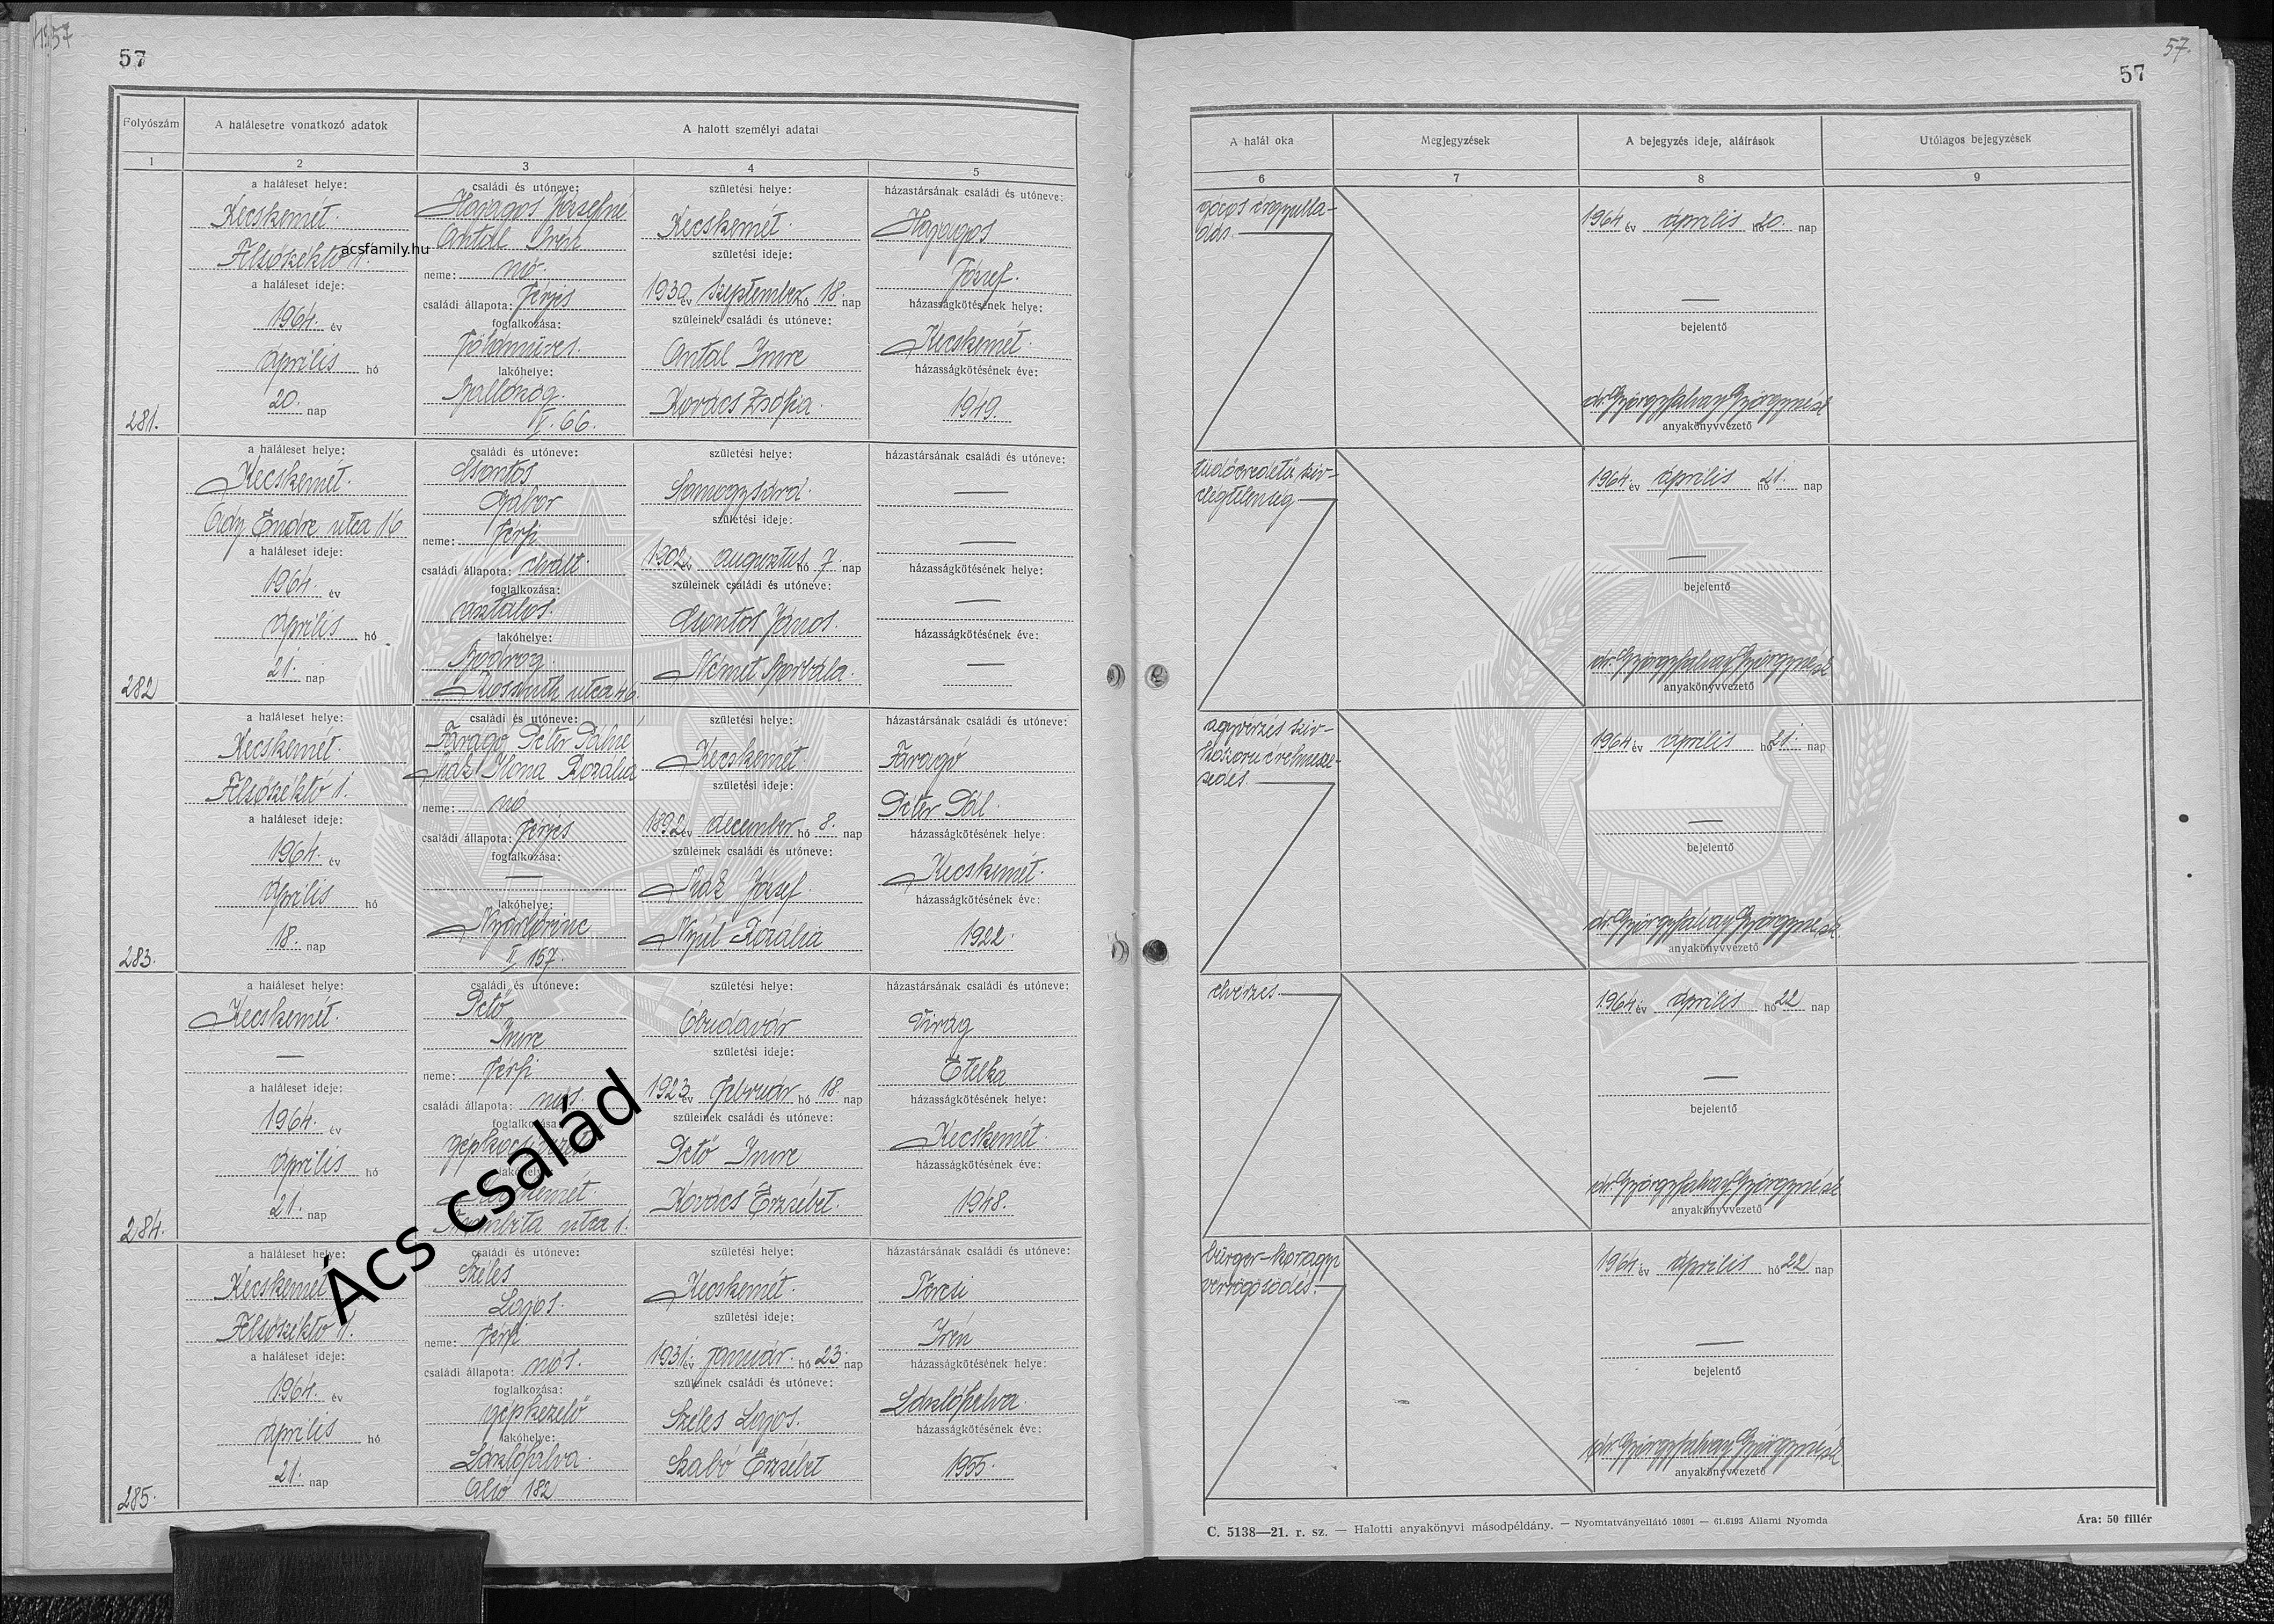 57
57
57.
57
Folyószám
A halálesetre vonatkozó adatok
A halott személyi adatai
1
2
3
4
5
a haláleset helye:
Kecskemét.
Felsőszéktó 1.
a haláleset ideje:
1964. év
április hó
20. nap
281.
családi és utóneve:
Hajagos Józsefné
Antal Irén
neme: nő.
családi állapota: férjes
foglalkozása:
földműves.
lakóhelye:
Ballószög.
II. 66.
születési helye:
Kecskemét.
születési ideje:
1930 év szeptember hó 18. nap
szüleinek családi és utóneve:
Antal Imre
Kovács Zsófia.
házastársának családi és utóneve:
Hajagos
József.
házasságkötésének helye:
Kecskemét.
házasságkötésének éve:
1949.
a haláleset helye:
Kecskemét.
Ady Endre utca 16
a haláleset ideje:
1964. év
április hó
21. nap
282
családi és utóneve:
Csontos
Gábor
neme: férfi
családi állapota: elvált.
foglalkozása:
asztalos.
lakóhelye:
Bodrog.
Kossuth utca 46
születési helye:
Somogysárd.
születési ideje:
1902 év augusztus hó 7. nap
szüleinek családi és utóneve:
Csontos János.
Német Borbála.
házastársának családi és utóneve:
—
—
házasságkötésének helye:
—
házasságkötésének éve:
—
a haláleset helye:
Kecskemét.
Felsőszéktó 1.
a haláleset ideje:
1964. év
április hó
18. nap
283.
családi és utóneve:
Faragó Péter Pálné
Ilona Rozália
neme: nő
családi állapota: férjes
foglalkozása:
—
lakóhelye:
Nyárlőrinc
II, 157.
születési helye:
Kecskemét.
születési ideje:
1892 év december hó 8. nap
szüleinek családi és utóneve:
József.
Nyúl Rozália
házastársának családi és utóneve:
Faragó
Péter Pál.
házasságkötésének helye:
Kecskemét.
házasságkötésének éve:
1922.
a haláleset helye:
Kecskemét.
—
a haláleset ideje:
1964. év
április hó
21. nap
284.
családi és utóneve:
Pető
Imre
neme: férfi
családi állapota: nős.
foglalkozása:
lakóhelye:
Kecskemét.
utca 1.
születési helye:
Óbudavár
születési ideje:
1923 év február hó 18. nap
szüleinek családi és utóneve:
Pető Imre
Kovács Erzsébet.
házastársának családi és utóneve:
Virág
Etelka
házasságkötésének helye:
Kecskemét.
házasságkötésének éve:
1948.
a haláleset helye:
Kecskemét
Felsőszéktó 1.
a haláleset ideje:
1964. év
április hó
21. nap
285.
családi és utóneve:
Szeles
Lajos.
neme: férfi
családi állapota: nős.
foglalkozása:
gépkezelő
lakóhelye:
Lászlófalva.
Alsó 182
születési helye:
Kecskemét.
születési ideje:
1931. év január hó 23. nap
szüleinek családi és utóneve:
Szeles Lajos.
Szabó Erzsébet
házastársának családi és utóneve:
Irén
házasságkötésének helye:
Lászlófalva.
házasságkötésének éve:
1955.
A halál oka
Megjegyzések
A bejegyzés ideje, aláírások
Utólagos bejegyzések
6
7
8
9
gócos
1964 év április hó 20. nap
—
bejelentő
dr. Györgyfalvay Györgyné sk
anyakönyvvezető
tüdőeredetű szív-
elégtelenség
1964 év április hó 21. nap
—
bejelentő
dr. Györgyfalvay Györgyné sk
anyakönyvvezető
agyvérzés szív-
koszorúérelmesze-
sedés.
1964 év április hó 21. nap
—
bejelentő
dr. Györgyfalvay Györgyné sk
anyakönyvvezető
elvérzés.
1964. év április hó 22 nap
—
bejelentő
dr. Györgyfalvay Györgyné sk
anyakönyvvezető
bürger-koragyi
verrögösödés.
1964. év április hó 22 nap
—
bejelentő
dr. Györgyfalvay Györgyné sk
anyakönyvvezető
C. 5138—21. r. sz. — Halotti anyakönyvi másodpéldány. — Nyomtatványellátó 10301 — 61.6193 Állami Nyomda
Ára: 50 fillér
acsfamily.hu
Ács család